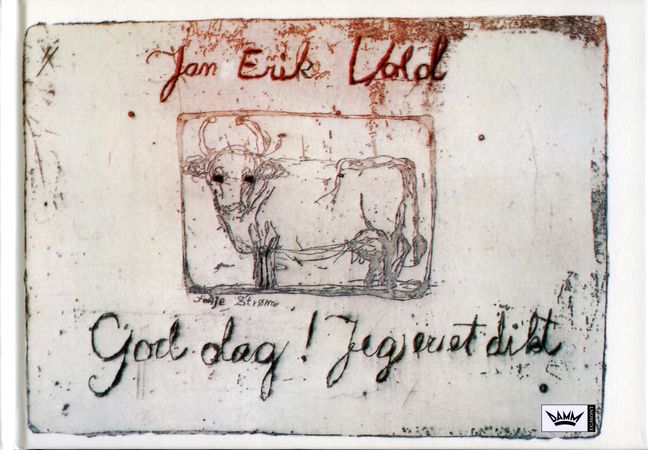 Jan Erik Vold
Strøm
God dag! Jeg er et dikt
DAMM
EGMONT